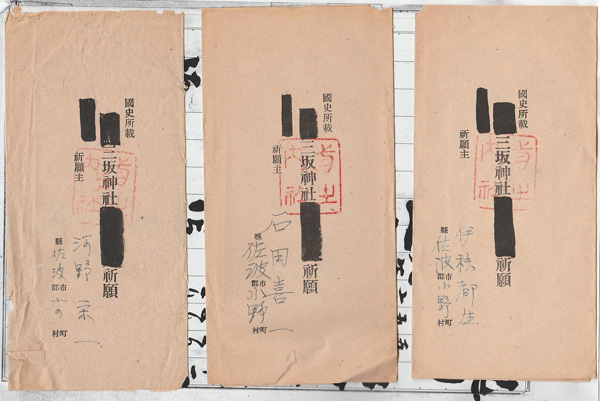 國史所載
三坂神社 祈願
祈願主
縣 佐波 市郡 小野 町村
國史所載
三坂神社 祈願
祈願主 石田喜一
縣 佐波 市郡 小野 町村
國史所載
三坂神社 祈願
祈願主 河野栄一
縣 佐波 市郡 小の 町村